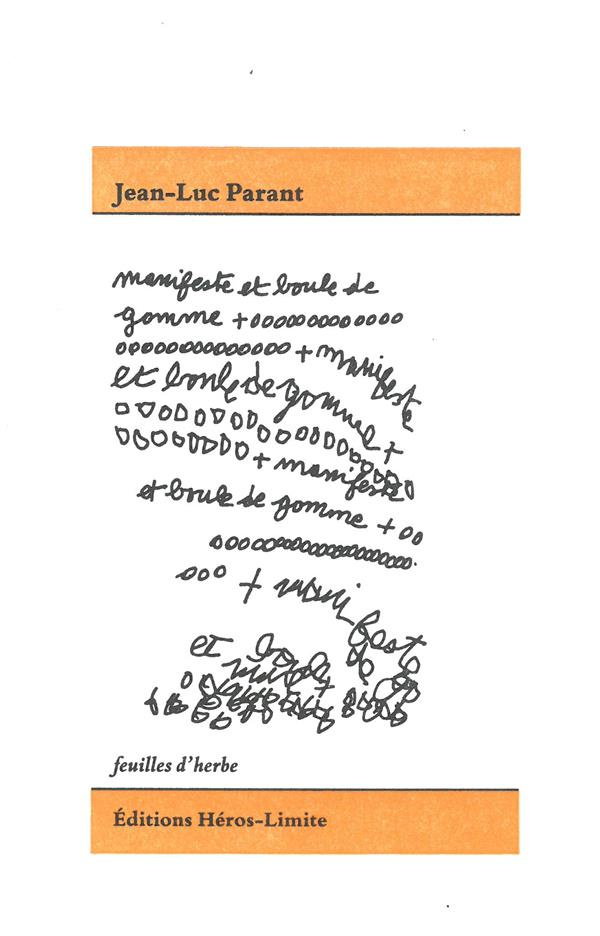 Jean-Luc Parant
manifeste et boule de
gomme +ooooooooooooo
oooooooooooooo + manifeste
et boule de gomme +
ooooooooooooooooo
oooooooo + manifeste
et boule de gomme + oo
ooooooooooooooooooo
ooo + mani feste
et boule de
feuilles d'herbe
Éditions Héros-Limite